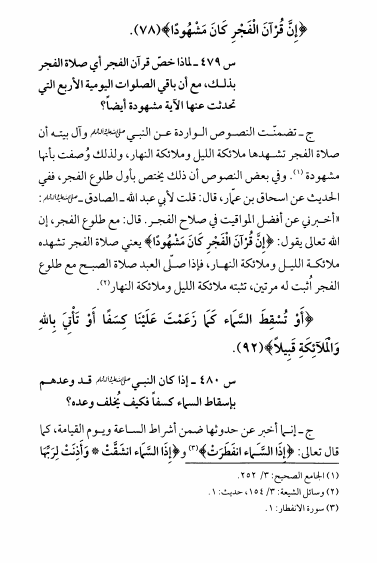 ﴿إِنَّ قُرْآنَ الْفَجْرِ كَانَ مَشْهُودًا﴾(٧٨).
س ٤٧٩ ـ لماذا خصّ قرآن الفجر أي صلاة الفجر
بذلـك، مع أن باقي الصلوات اليومية الأربع التي
تحدثت عنها الآية مشهودة أيضاً؟
ج ـ تضمنّـت النصـوص الـواردة عـن النبـي ﷺ وآل بيتـه أن
صـلاة الفجـر تشـهدها ملائكـة الليـل وملائكـة النهار، ولذلك وُصفت بأنها
مشهودة (١). وفي بعض النصوص أن ذلك يختص بأول طلوع الفجر، ففي
الحديث عن اسحاق بن عمّار، قال: قلت لأبي عبد الله ـ الصادق ـ :
«أخبرني عن أفضل المواقيت في صلاح الفجـر. قال: مع طلوع الفجر، إن
الله تعالى يقول: ﴿إِنَّ قُرْآنَ الْفَجْرِ كَانَ مَشْهُودًا﴾ يعني صلاة الفجر تشهده
ملائكـة الليـل وملائكة النهـار، فإذا صـلّى العبد صلاة الصبـح مع طلوع
الفجر أُثبت له مرتين، تثبته ملائكة الليل وملائكة النهار»(٢).
﴿أَوْ تُسْقِطَ السَّمَاء كَمَا زَعَمْتَ عَلَيْنَا كِسَفًا أَوْ تَأْتِيَ بِاللهِ
وَالْمَلآئِكَةِ قَبِيلاً﴾(٩٢).
س ٤٨٠ ـ إذا كان النبـي ﷺ قـد وعدهـم
بإسقاط السماء كسفاً فكيف يُخلف وعده؟
ج ـ إنـما أخبر عن حدوثها ضمن أشراط الساعـة ويـوم القيامة، كما
قال تعالى: ﴿إِذَا السَّمَاء انفَطَرَتْ﴾(٣) و﴿إِذَا السَّمَاء انشَقَّتْ * وَأَذِنَتْ لِرَبِّهَا
(١) الجامع الصحيح: ٣/ ٢٥٢.
(٢) وسائل الشيعة: ٣/ ١٥٤، حديث: ١.
(٣) سورة الانفطار: ١.